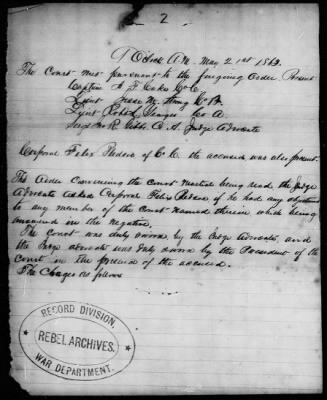 2
O'Clock A.M. May 21st 1863
The Court met pursuant to the foregoing Order Present
Captain J. J. Co C
Lieut Jesse M. Co B.
Lieut Robt Co A
Serg W R Gibbs C. S. Judge Advocate
Corporal Felix of Co C the accused was also present.
The Order Convening the Court Martial being read the Judge
Advocate asked Corporal Felix if he had any objections
to any member of the Court named therein which being
answered in the negative,
The Court was duly sworn by the Judge Advocate, and
the Judge Advocate was duly sworn by the President of the
Court in the presence of the accused.
The Charges as follows
RECORD DIVISION,
REBEL ARCHIVES.
WAR DEPARTMENT.